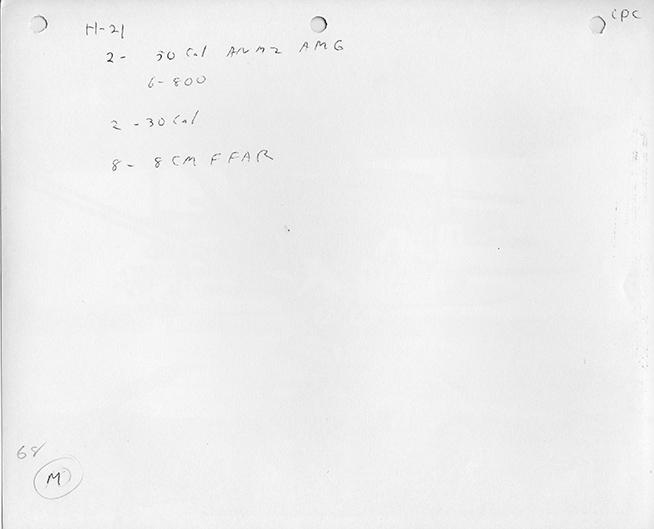 CPC
H-21
2 - 50 Cal AN M2 AMG
6-800
2 - 30 Cal
8 - 8 CM FFAR
68
M